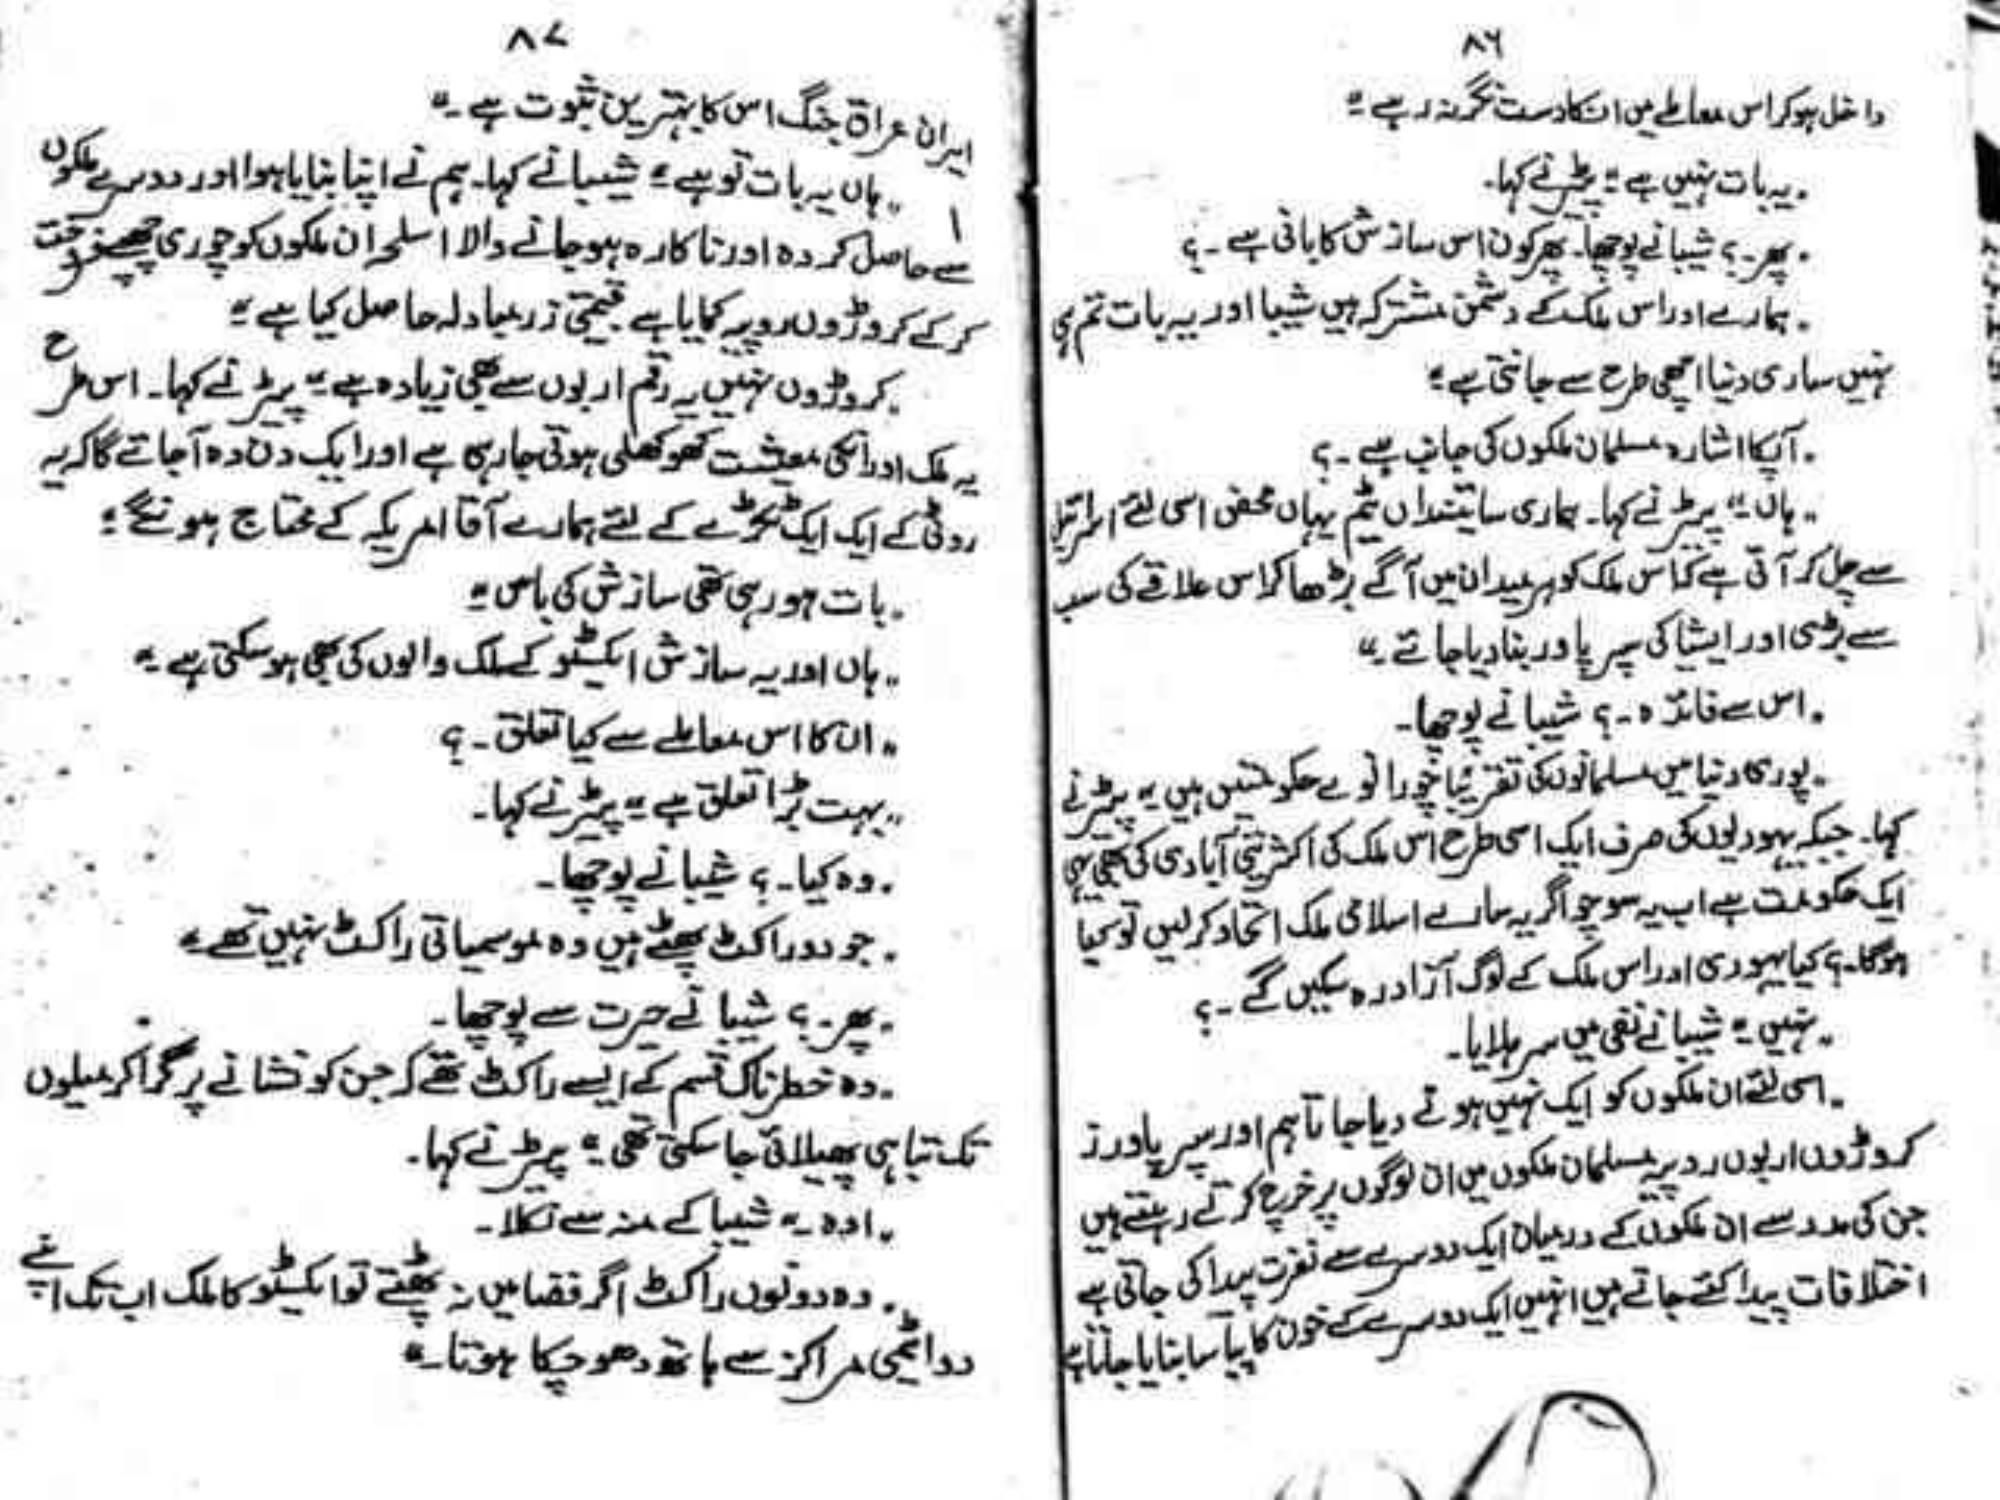 ۸۶
داخل ہوکر اس معاملے میں ان کا دست نگر نہ رہے۔"
"یہ بات نہیں ہے۔" پیٹر نے کہا۔
"پھر۔؟ شیبا نے پوچھا۔ پھر کون اس سازش کا بانی ہے۔؟
"ہمارے اور اس ملک کے دشمن مشترکہ ہیں شیبا اور یہ بات تم ہی
نہیں ساری دنیا اچھی طرح سے جانتی ہے۔"
"آپکا اشارہ مسلمان ملکوں کی جانب ہے۔؟
"ہاں۔" پیٹر نے کہا۔ ہماری سائینسداں ٹیم یہاں محض اسی لئے اسرائیل
سے چل کر آئی ہے کہ اس ملک کو ہر میدان میں آگے بڑھا کر اس علاقے کی سب
سے بڑی اور ایشیا کی سپر پاور بنا دیا جائے۔"
"اس سے فائدہ۔؟ شیبا نے پوچھا۔
"پوری دنیا میں مسلمانوں کی تقریباً چورانوے حکومتیں ہیں۔" پیٹر نے
کہا۔ جبکہ یہودیوں کی صرف ایک اسی طرح اس ملک کی اکثریتی آبادی کی بھی یہی
ایک حکومت ہے اب یہ سوچو اگر یہ سارے اسلامی ملک اتحاد کر لیں تو کیا
ہوگا۔؟ کیا یہودی اور اس ملک کے لوگ آزاد رہ سکیں گے۔؟
"نہیں۔" شیبا نے نفی میں سر ہلایا۔
"اسی لئے ان ملکوں کو ایک نہیں ہونے دیا جاتا ہم اور سپر پاورز
کروڑوں اربوں روپیہ مسلمان ملکوں میں ان لوگوں پر خرچ کرتے رہتے ہیں
جن کی مدد سے ان ملکوں کے درمیان ایک دوسرے سے نفرت پیدا کی جاتی ہے
اختلافات پیدا کئے جاتے ہیں انہیں ایک دوسرے کے خون کا پیاسا بنایا جاتا ہے
۸۷
ایران عراق جنگ اس کا بہترین ثبوت ہے۔"
"ہاں یہ بات تو ہے۔" شیبا نے کہا۔ ہم نے اپنا بنایا ہوا اور دوسرے ملکوں
سے حاصل کردہ اور ناکارہ ہو جانے والا اسلحہ ان ملکوں کو چوری چھپے فروخت
کر کے کروڑوں روپیہ کمایا ہے قیمتی زرمبادلہ حاصل کیا ہے۔"
"کروڑوں نہیں یہ رقم اربوں سے بھی زیادہ ہے۔" پیٹر نے کہا۔ اس طرح
یہ ملک اور انکی معیشت کھوکھلی ہوتی جا رہی ہے اور ایک دن وہ آ جائے گا کہ یہ
روٹی کے ایک ایک ٹکڑے کے لئے ہمارے آقا امریکہ کے محتاج ہونگے۔"
"بات ہو رہی تھی سازش کی باس۔"
"ہاں اور یہ سازش ایکسٹو کے ملک والوں کی بھی ہو سکتی ہے۔"
"ان کا اس معاملے سے کیا تعلق۔؟
"بہت بڑا تعلق ہے۔" پیٹر نے کہا۔
"وہ کیا۔؟ شیبا نے پوچھا۔
"جو دو راکٹ پھٹے ہیں وہ موسمیاتی راکٹ نہیں تھے۔"
"پھر۔؟ شیبا نے حیرت سے پوچھا۔
"وہ خطرناک قسم کے ایسے راکٹ تھے کہ جن کو نشانے پر گرا کر میلوں
تک تباہی پھیلائی جا سکتی تھی۔" پیٹر نے کہا۔
"اوہ۔" شیبا کے منہ سے نکلا۔
"وہ دونوں راکٹ اگر فضا میں نہ پھٹتے تو ایکسٹو کا ملک اب تک اپنے
دو اٹیمی مراکز سے ہاتھ دھو چکا ہوتا۔"